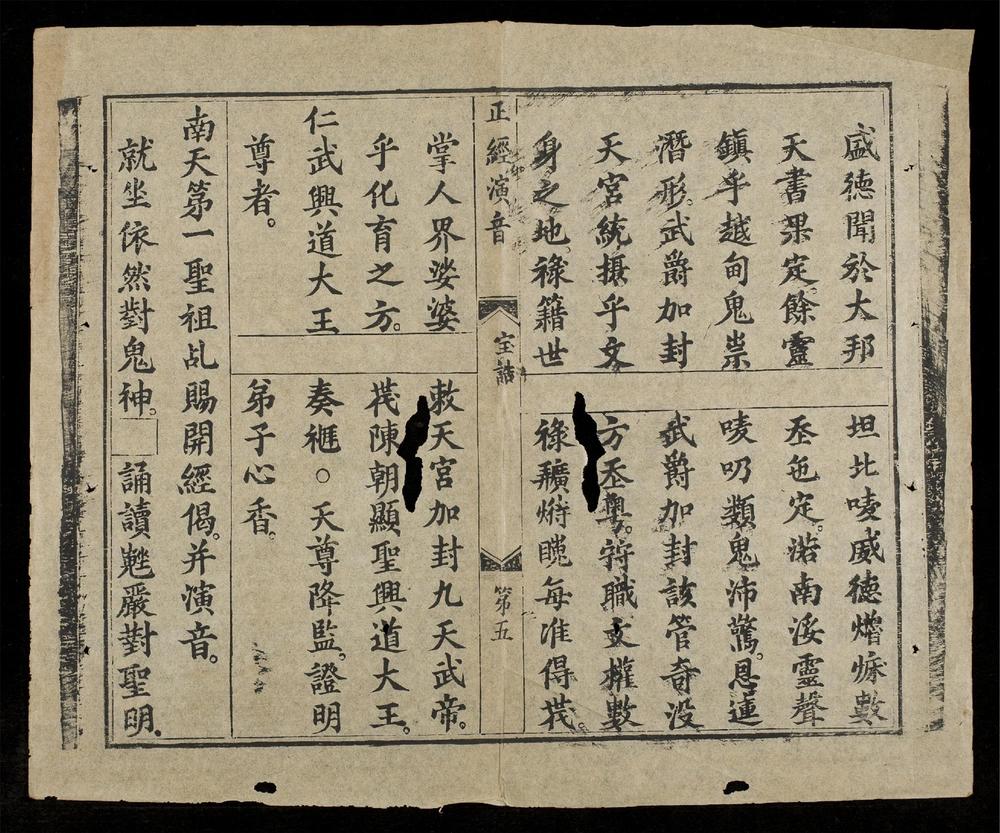 盛德聞於大邦
天書果定餘靈
鎮乎越甸鬼祟
潛形。武爵加封
天宮統攝乎文
身之地。祿籍世
坦比唛威德熷
丕包定。湝南浽靈聲
唛叨類鬼沛驚。恩運
武爵加封該管奇没
方丕粵。符職文權數
祿穬烐𥊚每准得茂
正經演音
宝誥
第五
掌人界娑婆
乎化育之方。
仁武興道大王
尊者。
敕天宮加封九天武帝。
茂陳朝顯聖興道大王。
奏裭○天尊降監。證明
弟子心香。
南天第一聖祖乩賜開經偈。并演音。
就坐依然對鬼神。
誦讀嚴對聖明.